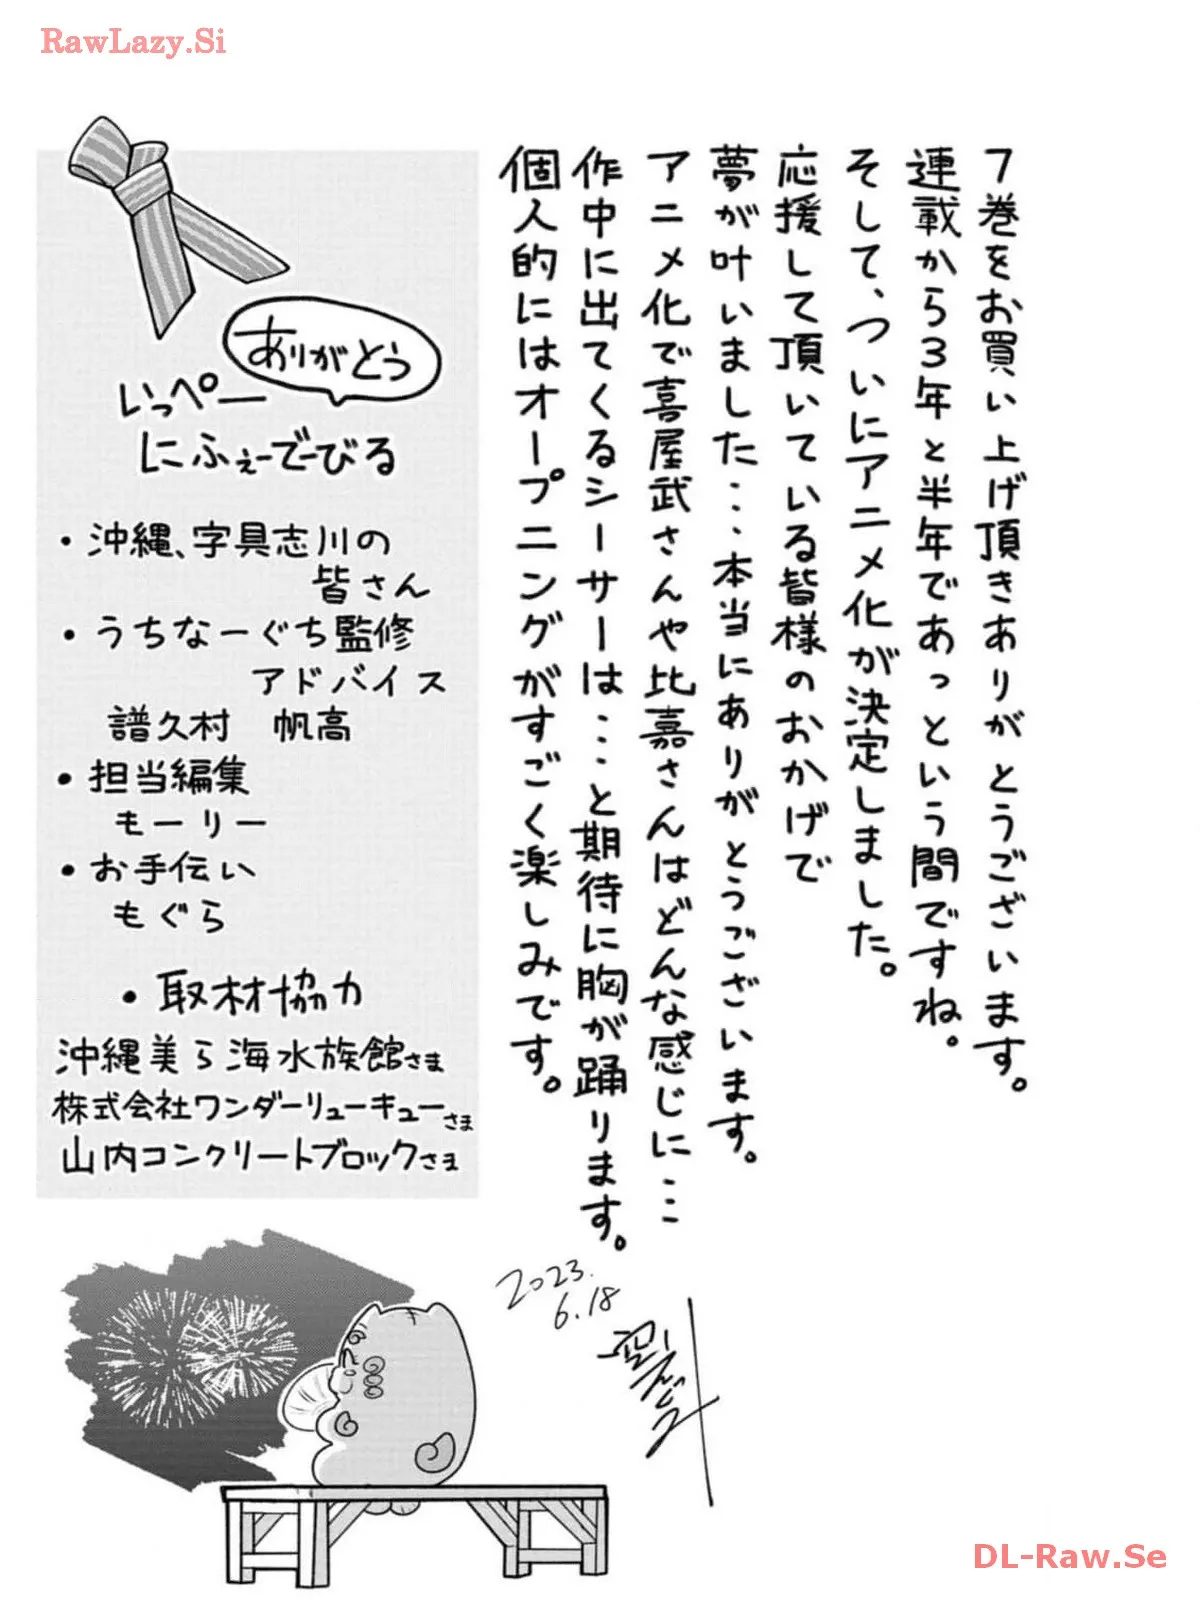 RawLazy.Si
7巻をお買い上げ頂きありがとうございます。
連載から3年と半年であっという間ですね。
そして、ついにアニメ化が決定しました。
応援して頂いている皆様のおかげで
夢が叶いました…本当にありがとうございます。
アニメ化で喜屋武さんや比嘉さんはどんな感じに…
作中に出てくるシーサーは…と期待に胸が踊ります。
個人的にはオープニングがすごく楽しみです。
2023.
6.18
ありがとう
いっぺー
にふぇーでーびる
・沖縄、字具志川の
皆さん
・うちなーぐち監修
アドバイス
譜久村 帆高
・担当編集
もーりー
・お手伝い
もぐら
・取材協力
沖縄美ら海水族館さま
株式会社ワンダーリューキューさま
山内コンクリートブロックさま
DL-Raw.Se